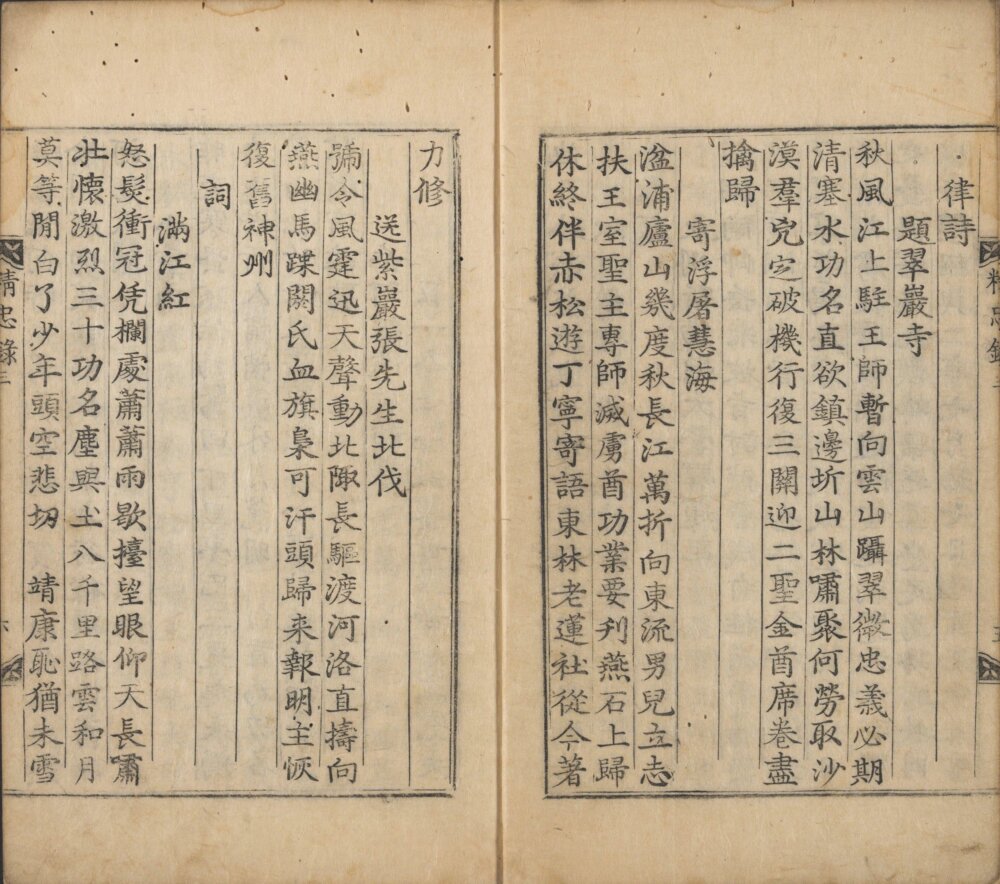 律詩
題翠巖寺
秋風江上駐王師暫向雲山躡翠微忠義必期
清塞水功名直欲鎮邊圻山林嘯聚何勞取沙
漠羣兇定破機行復三關迎二聖金酋席卷盡
擒歸
寄浮屠慧海
湓浦廬山幾度秋長江萬折向東流男兒立志
扶王室聖主專師滅虜酋功業要刋燕石上歸
休終伴赤松遊丁寧寄語東林老蓮社從今著
力修
送紫巖張先生北伐
號令風霆迅天聲動北陬長驅渡河洛直擣向
燕幽馬蹀閼氏血旗梟可汗頭歸来報明主恢
復舊神州
詞
滿江紅
怒髮衝冠凭欄處蕭蕭雨歇擡望眼仰天長嘯
壯懷激烈三十功名塵與土八千里路雲和月
莫等閒白了少年頭空悲切 靖康恥猶未雪
精忠錄三
六